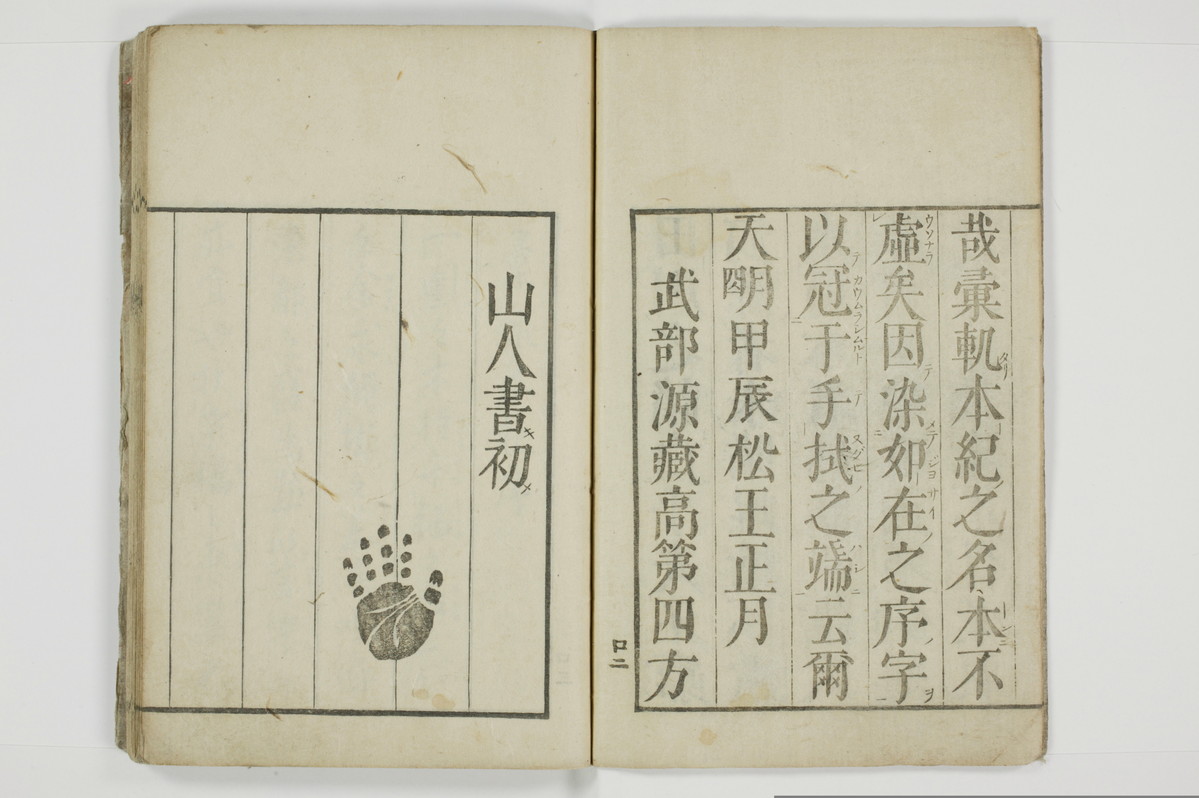 哉彙軏本紀之名本不
虛矣因染如在之序字
以冠于手拭之端云爾
天明四甲辰松王正月
武部源藏高第四方
口二
山人書初